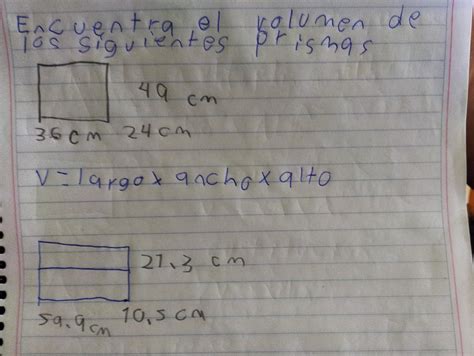 Encuentra el volumen de
los siguientes prismas
49 cm
36 cm 24 cm
V=largo x ancho x alto
21.3 cm
59.9 cm 10.5 cm